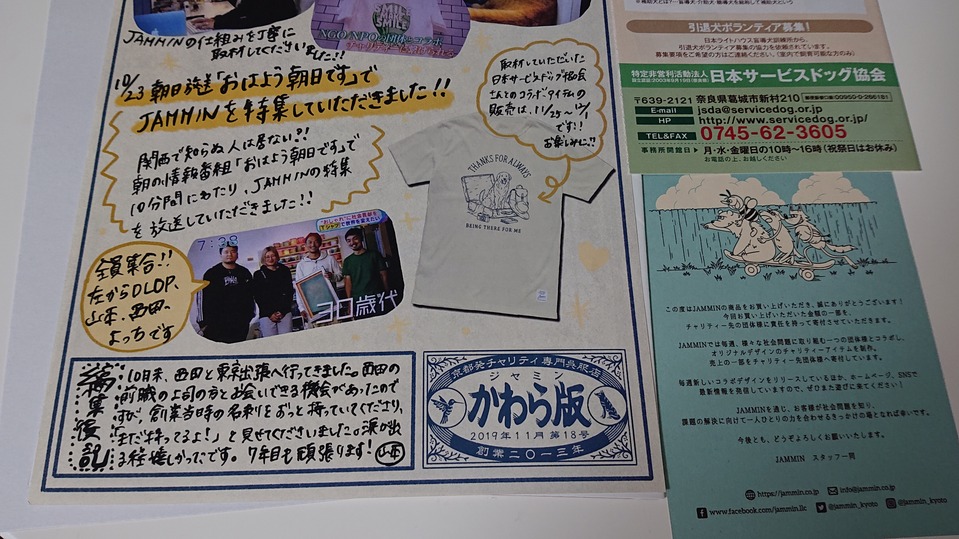 JAMMINの仕組みを丁寧に
取材してくださいました!!
SMILE
NGO/NPOの団体とコラボ
10/23 朝日放送「おはよう朝日です」で
JAMMINを特集していただきました!!
関西で知らぬ人は居ない?!
朝の情報番組「おはよう朝日です」で
10分間にわたり、JAMMINの特集
を放送していただきました!!
取材していただいた
日本サービスドッグ協会
さんとのコラボアイテムの
販売は、11/25〜12/1
です!!
お楽しみに!!
THANKS FOR ALWAYS
BEING THERE FOR ME
7:38
"おしゃれ"に社会貢献を
Tシャツで世界を変えたい
30歳代
全員集合!!
左からDLOP、
山本、西田、
よっちです
編集後記
10月末、西田と東京出張へ行ってきました。西田の
前職の上司の方とお会いできる機会があったので
すが、創業当時の名刺をずっと持っていてくださり、
「まだ持ってるよ!」と見せてくださいました。涙が出
る程嬉しかったです。7年目も頑張ります!山本
京都発チャリティ専門呉服店
ジャミン
かわら版
2019年11月 第18号
創業二〇一三年
引退犬ボランティア募集!
日本ライトハウス盲導犬訓練所から、
引退犬ボランティア募集の協力を依頼されています。
募集要項をご希望の方はご連絡ください。(室内で飼育可能な方のみ)
特定非営利活動法人 日本サービスドッグ協会
〒639-2121 奈良県葛城市新村210
E-mail jsda@servicedog.or.jp
HP http://www.servicedog.or.jp/
TEL&FAX 0745-62-3605
事務所開館日 月・水・金曜日の10時〜16時(祝祭日はお休み)
お電話の上、お越しください
この度はJAMMINの商品をお買い上げいただき、誠にありがとうございます!
今回お買い上げいただいた金額の一部を、
チャリティー先の団体様に責任を持って寄付させていただきます。
JAMMINでは毎週、様々な社会問題に取り組む一つの団体様とコラボし、
オリジナルデザインのチャリティーアイテムを制作。
売上の一部をチャリティー先団体様へ寄付しています。
毎週新しいコラボデザインをリリースしているほか、ホームページ、SNSで
最新情報を発信していますので、ぜひまた遊びに来てください!
JAMMINを通じ、お客様が社会問題を知り、
課題の解決に向けて一人ひとりの力を合わせるきっかけの場となれば幸いです。
今後とも、どうぞよろしくお願いいたします。
JAMMIN スタッフ一同
https://jammin.co.jp info@jammin.co.jp
www.facebook.com/jammin.llc jammin_kyoto jammin_kyoto